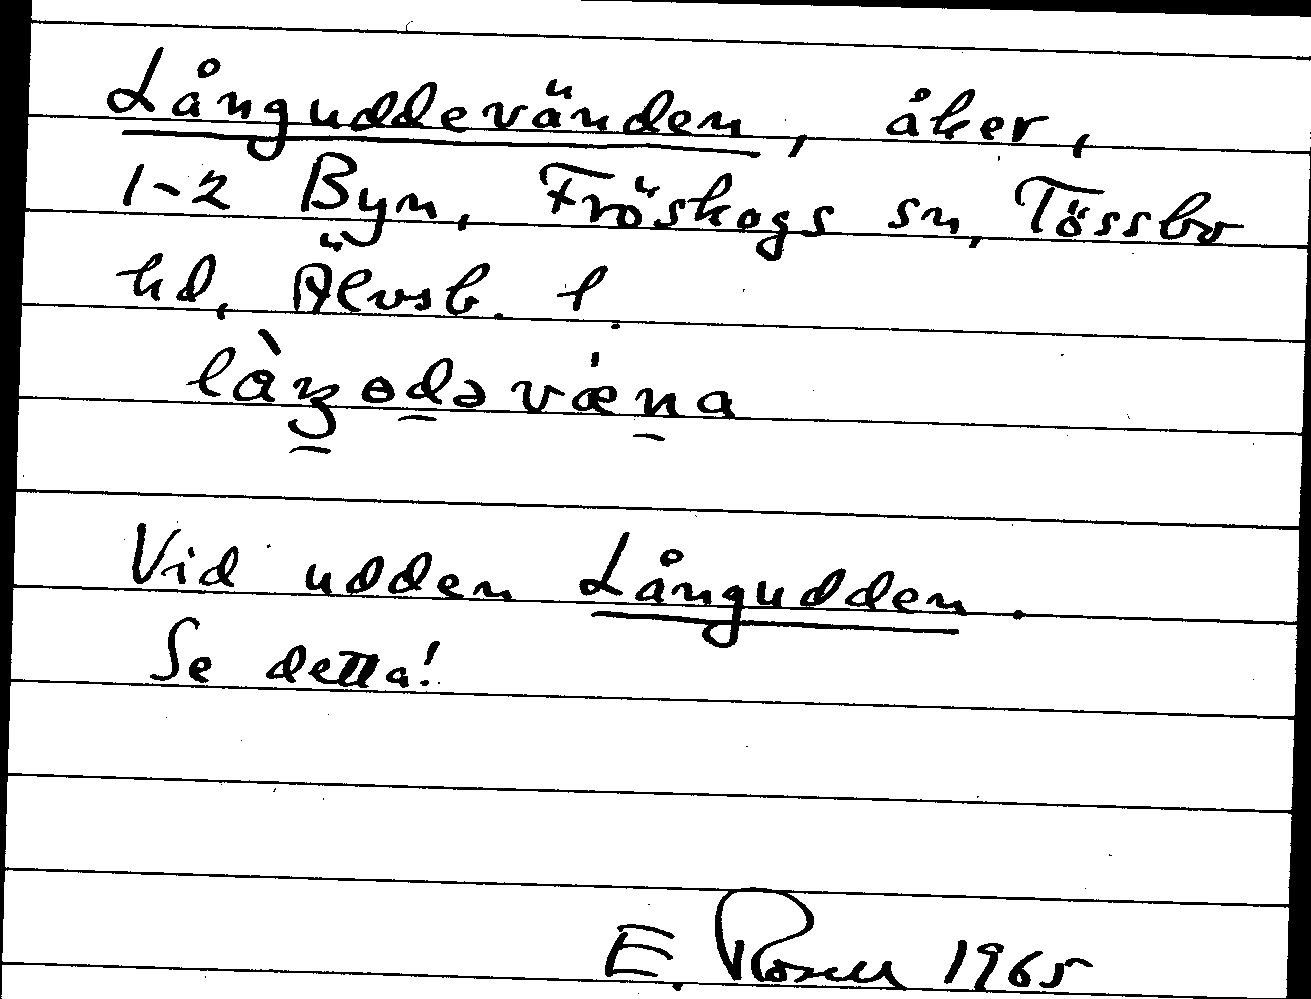 Långuddevänden, åker,
1-2 Byn, Fröskogs sn, Tössbo
hd, Älvsb. l.
là̀ŋ̠ɵd̠əvæ̇n̠a
Vid udden Långudden.
Se detta!
E. Rosell 1965